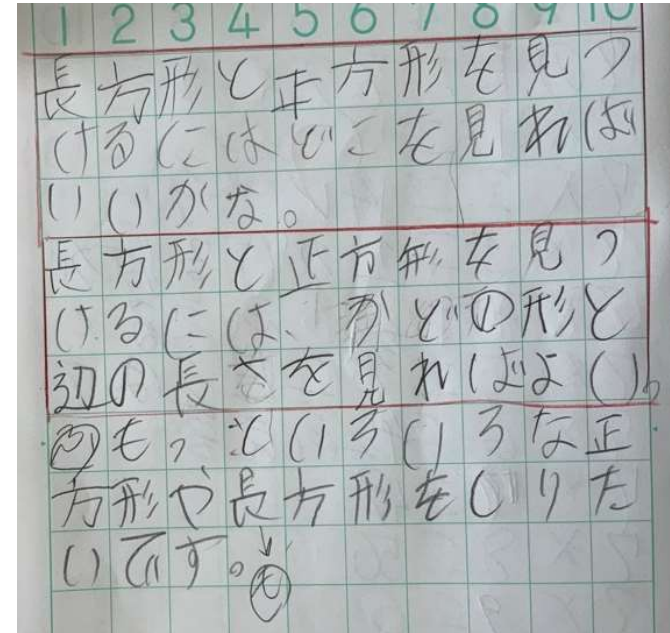 1 2 3 4 5 6 7 8 9 10
長方形と正方形を見つ
けるにはどこを見れば
いいかな。
長方形と正方形を見つ
けるには、かどの形と
辺の長さを見ればよい。
もっといろいろな正
方形や長方形をしりた
いです。↓
も